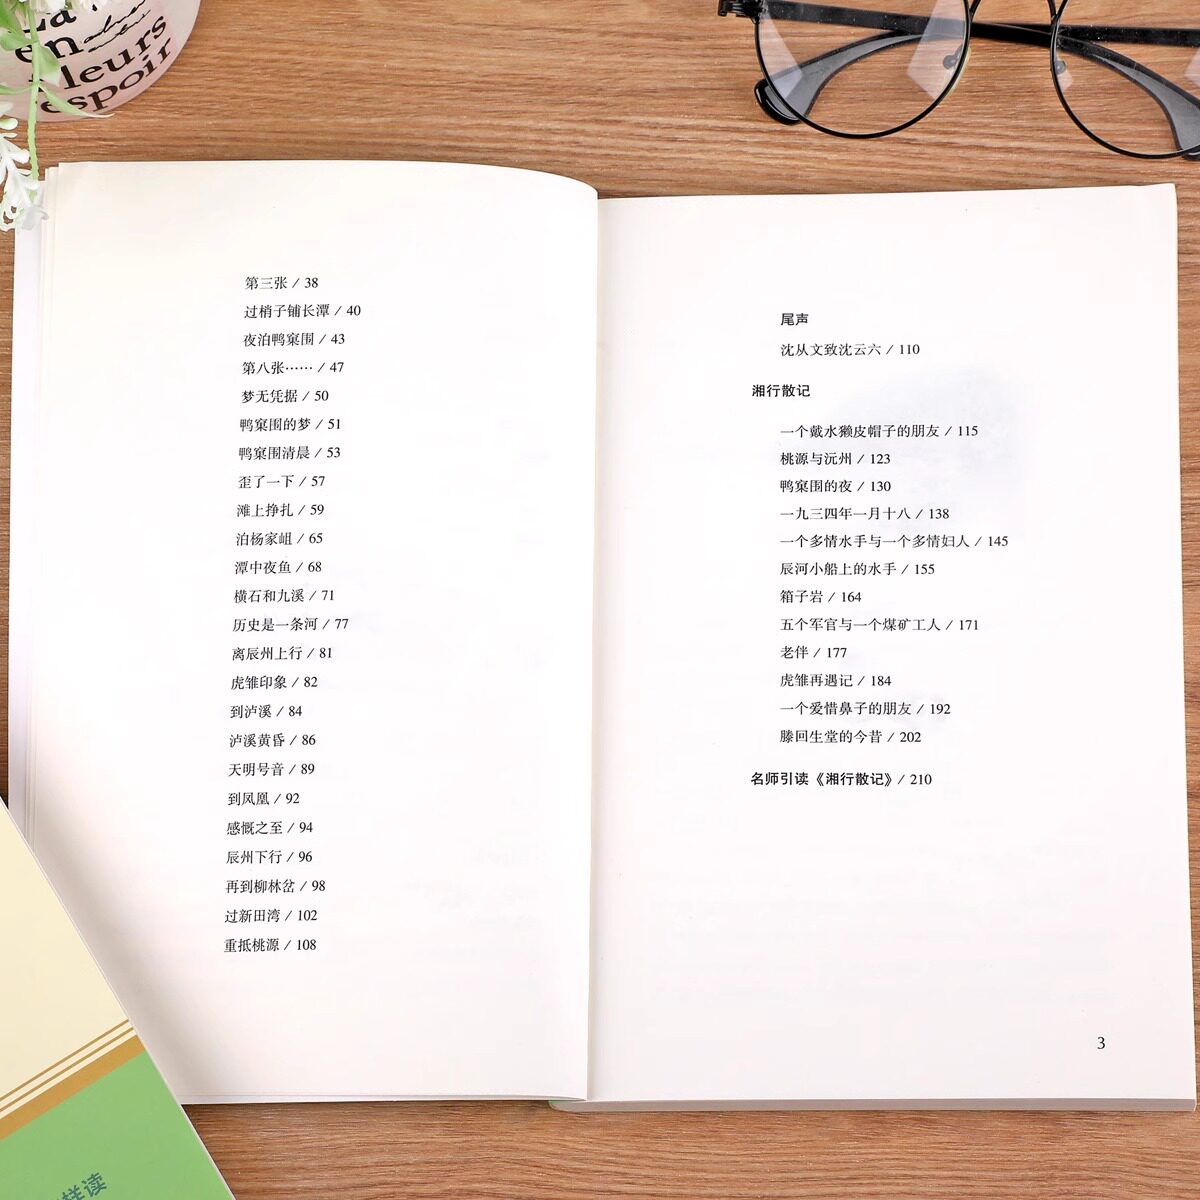 en
fleurs
espoir
第三张 / 38
过梢子铺长潭 / 40
夜泊鸭窠围 / 43
第八张…… / 47
梦无凭据 / 50
鸭窠围的梦 / 51
鸭窠围清晨 / 53
歪了一下 / 57
滩上挣扎 / 59
泊杨家岨 / 65
潭中夜鱼 / 68
横石和九溪 / 71
历史是一条河 / 77
离辰州上行 / 81
虎雏印象 / 82
到泸溪 / 84
泸溪黄昏 / 86
天明号音 / 89
到凤凰 / 92
感慨之至 / 94
辰州下行 / 96
再到柳林岔 / 98
过新田湾 / 102
重抵桃源 / 108
尾声
沈从文致沈云六 / 110
湘行散记
一个戴水獭皮帽子的朋友 / 115
桃源与沅州 / 123
鸭窠围的夜 / 130
一九三四年一月十八 / 138
一个多情水手与一个多情妇人 / 145
辰河小船上的水手 / 155
箱子岩 / 164
五个军官与一个煤矿工人 / 171
老伴 / 177
虎雏再遇记 / 184
一个爱惜鼻子的朋友 / 192
滕回生堂的今昔 / 202
名师引读《湘行散记》 / 210
3
样读